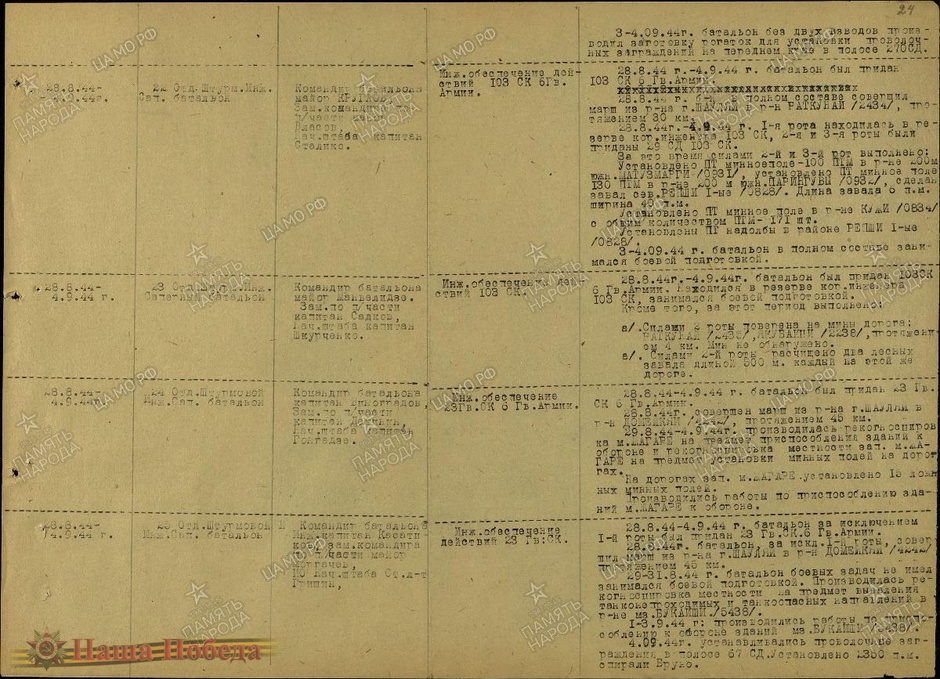 24
3-4.09.44г. батальон без двух взводов произ-
водил заготовку рогаток для установки проволоч-
ных заграждений на переднем крае в полосе 270СД.
28.8.44-
4.9.44г.
22 Отд.Штурм.Инж.
Сап. батальон
Командир батальона
майор
Зам.командира по
п/части майор
Власов,
Нач.штаба капитан
Сталико.
Инж.обеспечение дей-
ствий 103 СК 6Гв.
Армии.
28.8.44 г.-4.9.44 г. батальон был придан
103 СК 6 Гв.Армии.
28.8.44 г. б-н в полном составе совершил
марш из р-на г.ШАУЛЯЙ в р-н РАТКУНАЙ /2434/, про-
тяжением 30 км.
28.8.44г.-4.9.44 г. I-я рота находилась в ре-
зерве кор.инженера 103 СК, 2-я и 3-я роты были
приданы 29 СД 103 СК.
За это время силами 2-й и 3-й рот выполнено:
Установлено ПТ минное поле-100 ПТМ в р-не 200м
южн. /0931/, установлено ПТ минное поле
130 ПТМ в р-не 200 м южн. /0932/, сделан
завал сев.РЕПШИ I-ые /0828/. Длина завала 0 п.м.
ширина 40 п.м.
Установлено ПТ минное поле в р-не КУЖИ /0834/
с общим количеством ПТМ- 171 шт.
Установлены ПТ надолбы в районе РЕПШИ I-ые
/0828/.
3-4.09.44 г. батальон в полном составе зани-
мался боевой подготовкой.
28.8.44-
4.9.44 г.
23 Отд.Штурм.Инж.
Саперный батальон
Командир батальона
майор Манвелидзе.
Зам.по п/части
капитан Садков,
Нач.штаба капитан
Шкурченко.
Инж.обеспечение дей-
ствий 103 СК.
28.8.44г.-4.9.44г. батальон был придан 103СК
6 Гв.Армии. Находился в резерве кор.инженера
103 СК, занимался боевой подготовкой.
Кроме того, за этот период выполнено:
а/. Силами роты поверена на мины дорога:
РАТКУНАЙ /2435/, /2238/, протяжени-
ем 4 км. Мин не обнаружено.
а/. Силами 2-й роты расчищено два лесных
завала длиной 600 м. каждый на этой же
дороге.
28.8.44-
4.9.44г.
24 Отд.Штурмовой
Инж.Сап. батальон
Командир батальона
капитан Виноградов
Зам.по п/части
капитан
Нач.штаба капитан
Гонгадзе.
Инж.обеспечение
23Гв.СК 6 Гв.Армии.
28.8.44-4.9.44 г. батальон был придан 23 Гв.
СК 6 Гв.Армии.
28.8.44г. совершен марш из р-на г.ШАУЛЯЙ в
р-н ДОМЕЙКЯЙ /4242/, протяжением 45 км.
29.8.44-4.9.44г. производилась рекогносциров
ка м.ЖАГАРЕ на предмет приспособления зданий к
обороне и рекогносцировка местности зап. м.ЖА-
ГАРЕ на предмет установки минных полей на дорог
гах.
На дорогах зап. м.ЖАГАРЕ установлено 15 лож
ных минных полей.
Производились работы по приспособлению зда-
ний м.ЖАГАРЕ к обороне.
28.8.44-
4.9.44 г.
25 Отд.Штурмовой И
Инж.Сап. батальон
Командир батальона
Инж.капитан Касати
ков, зам.командира
по п/части майор
Моргачев,
ПО Нач.штаба Ст.л-т
Гришин,
Инж.обеспечение
действий 23 Гв.СК.
28.8.44-4.9.44 г. батальон за исключением
I-й роты был придан 23 Гв.СК.6 Гв.Армии.
28.8.44г. батальон, за искл.I-й роты, совер
шил марш из р-на г.ШАУЛЯЙ в р-н ДОМЕЙКЯЙ /4242/
протяжением 45 км.
29-31.8.44 г. батальон боевых задач не имел
занимался боевой подготовкой. Производилась ре-
когносцировка местности на предмет выявления
танконепроходимых и танкоопасных направлений в
р-не мз.БУКАЙШИ /5438/.
I-3.9.44 г. производились работы по приспо-
соблению к обороне зданий мз.БУКАЙШИ /5438/.
4.09.44г. устанавливались проволочные заг-
раждения в полосе 67 СД.Установлено 2350 п.м.
спирали Бруно.
ПАМЯТЬ
НАРОДА
ЦАМО РФ
Наша Победа